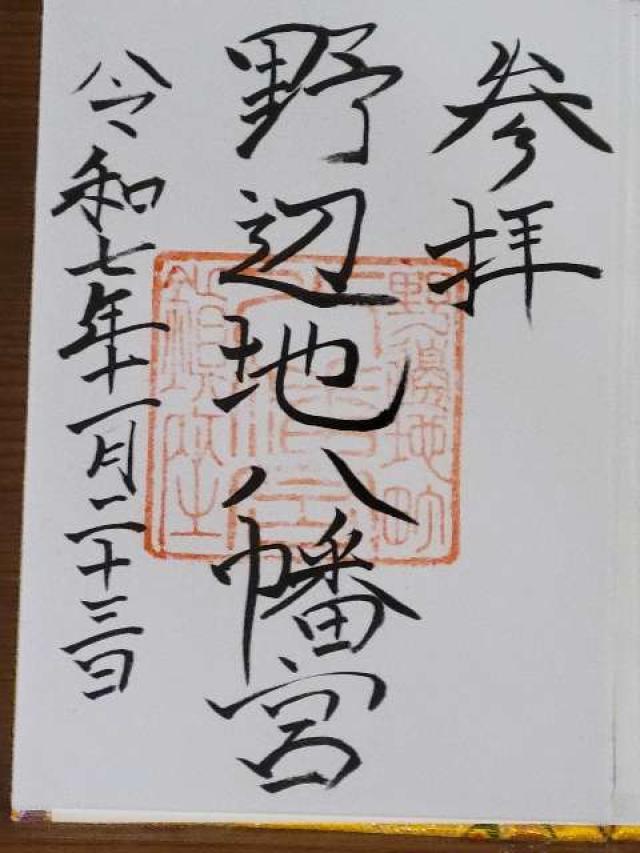 参拝
野辺地八幡宮
令和七年十一月二十三日
野邊地町
八幡宮
鎮座